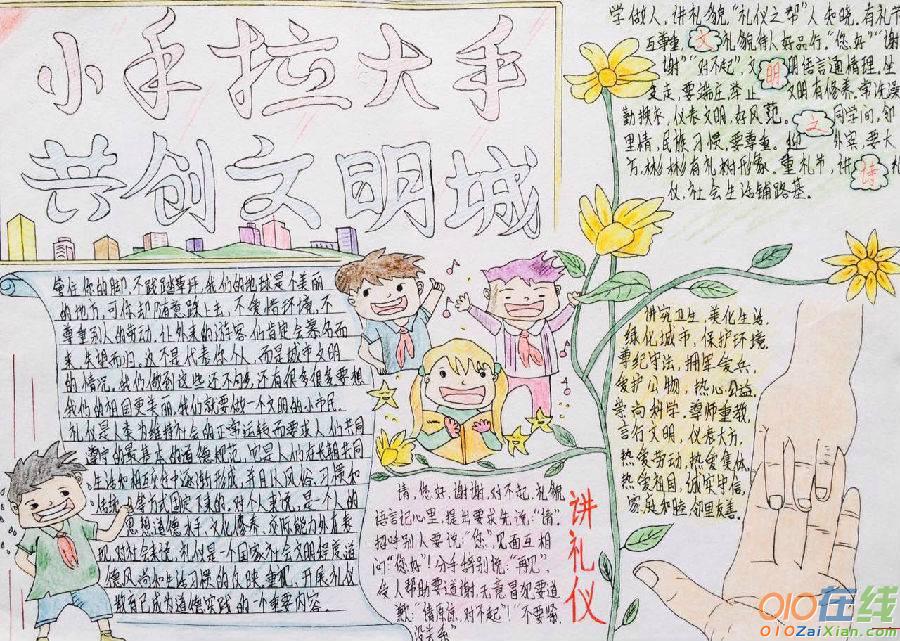 小手拉大手
共创文明城
学做人，讲礼貌，“礼仪之帮”人知晓，有礼节
互尊重，礼貌待人好品行。“您好”“谢
谢”“对不起”，文明语言通情理。坐
立走，要端庄，举止文明有修养。常洗澡
勤换衣，仪表文明，好风范。同学间，邻
里情，民族习惯，要尊重。外宾，要大
方，彬彬有礼树形象。重礼节，讲礼
仪，社会生活铺路基。
文
明
之
诗
管住你的脚，不践踏草坪，我们的地球是个美丽
的地方，可你却随意踩上去，不爱惜环境，不
尊重别人的劳动，让外来的游客，他们肯定会慕名而
来，失望而归，这不是代表你个人，而是城市文明
的情况。我们做到这些还不够，还有很多很多要想
我们的祖国更美丽，我们就要做一个文明的小市民。
礼仪是人类为维持社会的正常运转而要求人们共同
遵守的最基本的道德规范，它是人们在长期共同
生活和相互交往中逐渐形成，并且以风俗、习惯和
传统等方式固定下来的。对个人来说，是一个人的
思想道德水平、文化修养、交际能力外在表
现，对社会来说，礼仪是一个国家社会文明程度、道
德风尚和生活习惯的反映。重视、开展礼仪
教育已成为道德实践的一个重要内容。
讲究卫生，美化生活，
绿化城市，保护环境，
尊纪守法，拥军爱兵，
爱护公物，热心公益，
崇尚科学，尊师重教，
言行文明，仪表大方，
热爱劳动，热爱集体，
热爱节目，诚实守信，
家庭和睦，邻里友善。
请，您好，谢谢，对不起，礼貌
语言记心里，提出要求先说：“请”，
招呼别人要说“您”，见面互相
问“您好”！分手特别说：“再见”，
受人帮助要道谢，无意冒犯要道
歉：“请原谅，对不起”！“不要紧，
没关系”
讲礼仪
010在线
010ZaiXian.com